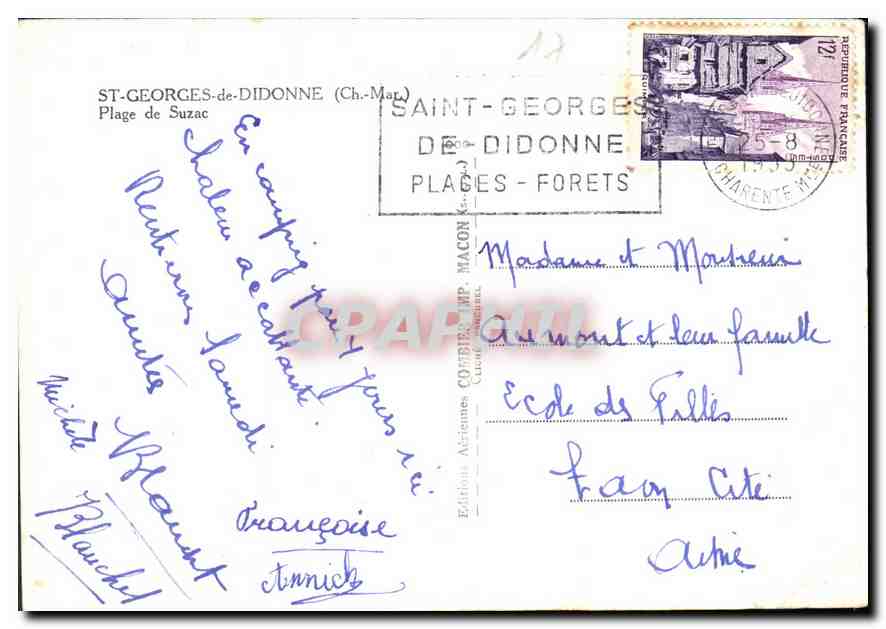 17
ST-GEORGES-de-DIDONNE (Ch.-Mar.)
Plage de Suzac
SAINT-GEORGES
DE-DIDONNE
PLAGES-FORETS
12F
REPUBLIQUE FRANÇAISE
25-8
1955
CHARENTE MME
En camping pour 4 jours ici.
Chaleur accablante
Rentrerons Samedi
amitiés Blanchet
Michèle
Blanchet
Françoise
Annick
Editions Aériennes COMBIER IMP. MACON
CLICHÉ
CPAPHIL
Madame et Monsieur
Aumont et leur famille
Ecole des Filles
Laon Cité
Aisne